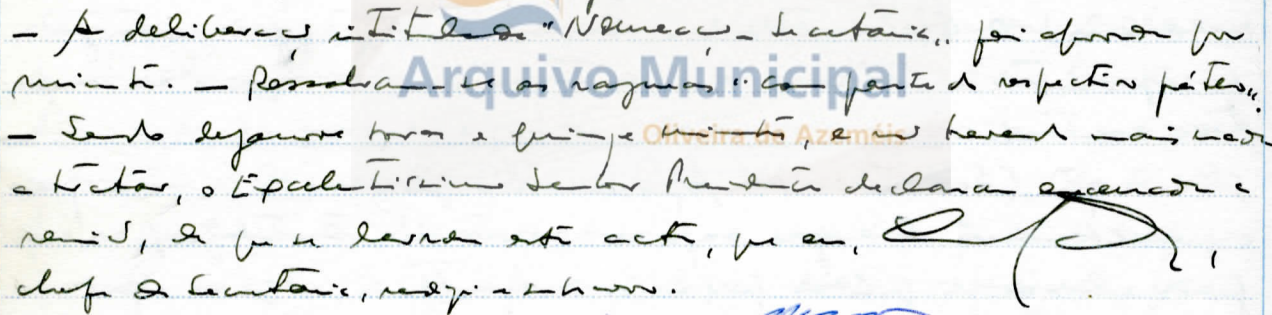 — A deliberação intitulada "Nomeação - Secretaria" foi aprovada por
minuta. — Ressalvam-se as rasuras: "com parte do respectivo páteo".
— Sendo dezanove horas e quinze minutos, e não havendo mais nada
a tratar, o Excelentíssimo Senhor Presidente declarou encerrada a
reunião, de que se lavrou esta acta, que eu,
chefe da Secretaria, redigi e subscrevo.
Arquivo Municipal
Oliveira de Azeméis